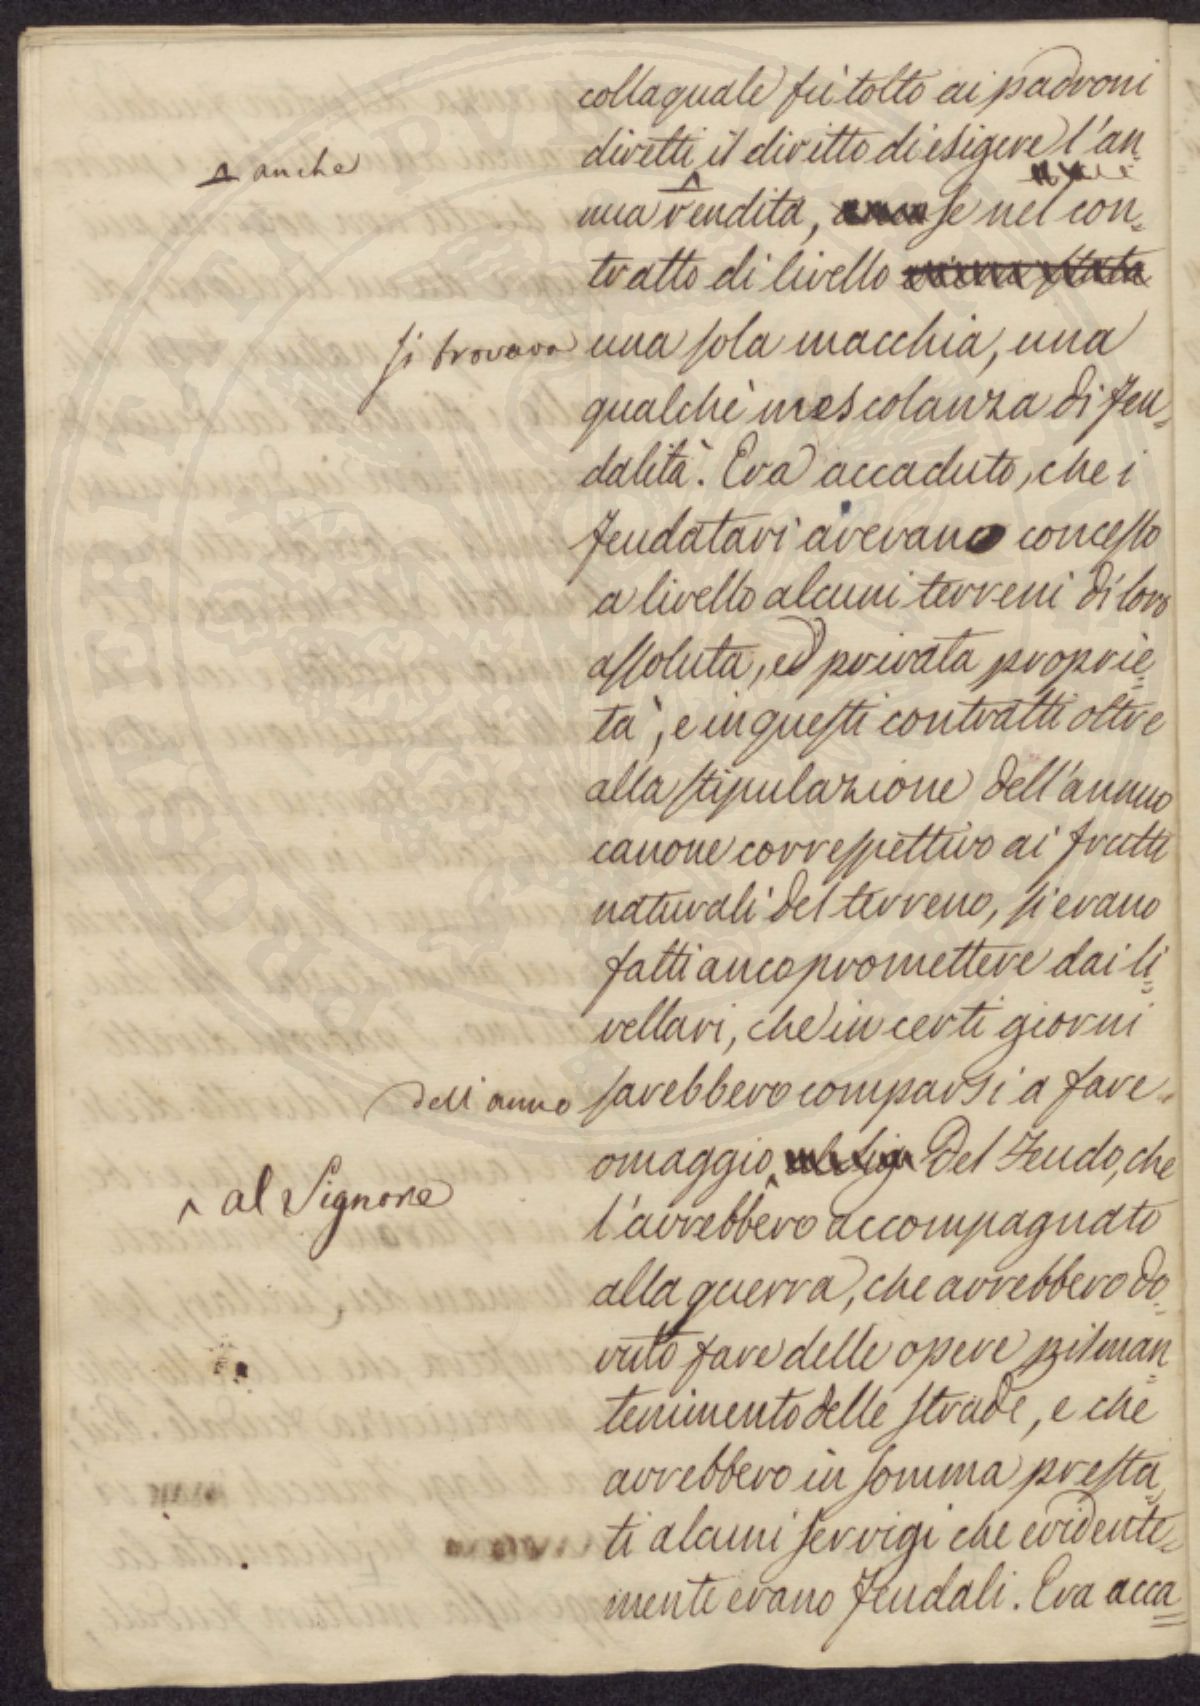 colla quale fù tolto ai padroni
diretti il diritto di esigere l'an-
^ anche
nua rendita, se nel con-
tratto di livello
si trovava una sola macchia, una
qualche mescolanza di feu-
dalità. Era accaduto, che i
feudatari avevano concesso
a livello alcuni terreni di loro
assoluta, ed privata proprie-
tà, e in questi contratti oltre
alla stipulazione dell'annuo
canone correspettivo ai frutti
naturali del terreno, si erano
fatti anco promettere dai li-
vellari, che in certi giorni
dell'anno sarebbero comparsi a fare
omaggio del Feudo, che
^ al Signore
l'avrebbero accompagnato
alla guerra, che avrebbero do-
vuto fare delle opere pil man-
tenimento delle strade, e che
avrebbero in somma presta-
ti alcuni servigi che evidente-
mente erano feudali. Era acca-
PROSPERITATI PVB